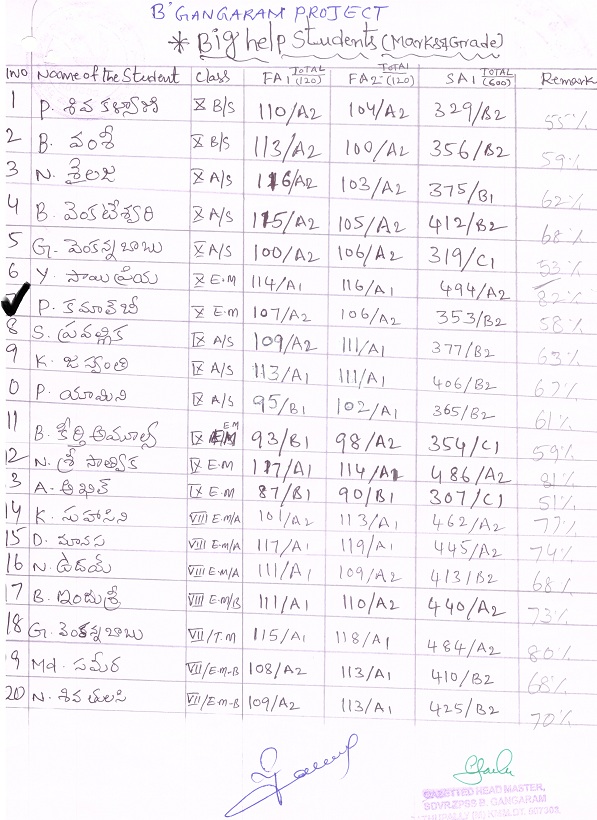 B' GANGARAM PROJECT
* Big help Students (Marks&Grade)
SNO Name of the Student Class FA1 TOTAL (120) FA2 TOTAL (120) SA1 TOTAL (600) Remark
1 P. శివ కళ్యాణి X B/S 110/A2 104/A2 329/B2 55%
2 B. వంశీ X B/S 113/A2 100/A2 356/B2 59%
3 N. శైలజ X A/S 116/A2 103/A2 375/B1 62%
4 B. వెంకటేశ్వరి X A/S 115/A2 105/A2 412/B2 68%
5 G. వెంకన్న బాబు X A/S 100/A2 106/A2 319/C1 53%
6 Y. సాయి ప్రియ X E.M 114/A1 116/A1 494/A2 82%
P. కమాల్ బీ X E.M 107/A2 106/A2 353/B2 58%
8 S. ప్రవల్లిక IX A/S 109/A2 111/A1 377/B2 63%
9 K. జస్వంతి IX A/S 113/A1 111/A1 406/B2 67%
0 P. యామిని IX A/S 95/B1 102/A1 365/B2 61%
11 B. కీర్తి అమూల్య IX EM 93/B1 98/A2 354/C1 59%
12 N. శ్రీ సాత్విక IX E.M 117/A1 114/A1 486/A2 81%
3 A. అఖిల్ IX E.M 87/B1 90/B1 307/C1 51%
14 K. సుహాసిని VIII E.M/A 101/A2 113/A1 462/A2 77%
15 D. మానస VIII E.M/A 117/A1 119/A1 445/A2 74%
16 N. ఉదయ్ VIII E.M/A 111/A1 109/A2 413/B2 68%
17 B. ఇందుశ్రీ VIII E.M/B 111/A1 110/A2 440/A2 73%
18 G. వెంకన్నబాబు VII/T.M 115/A1 118/A1 484/A2 80%
9 Md. సమీర VII/E.M-B 108/A2 113/A1 410/B2 68%
20 N. శివ తులసి VII/E.M-B 109/A2 113/A1 425/B2 70%
GAZETTED HEAD MASTER,
B. GANGARAM